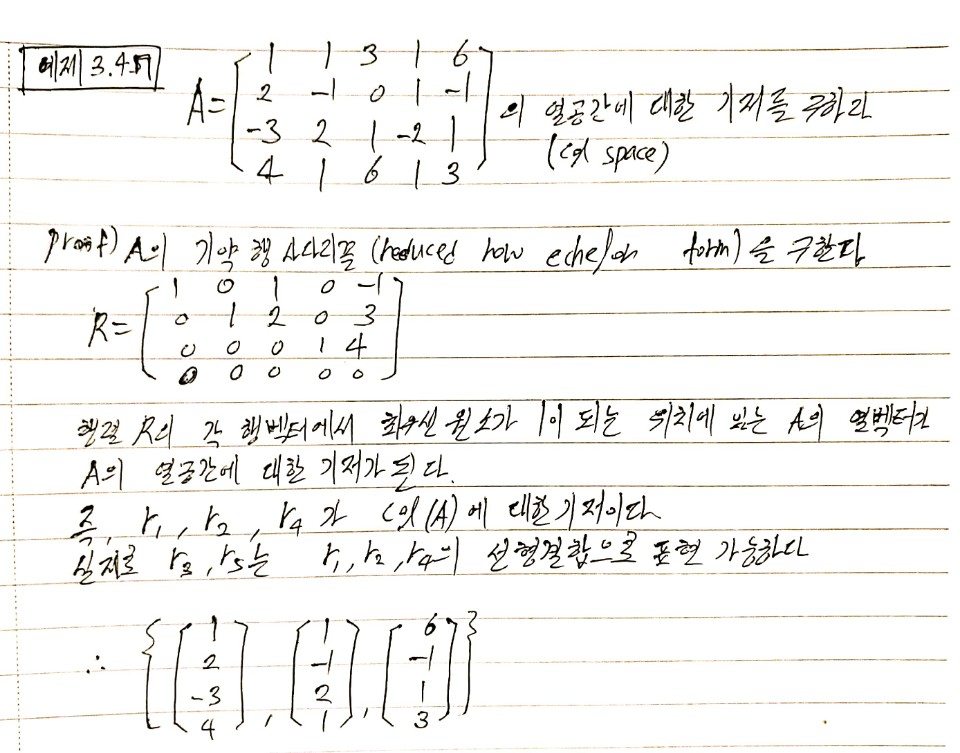 예제 3.4.17
A= [ 1 1 3 1 6
2 -1 0 1 -1
-3 2 1 -2 1
4 1 6 1 3 ] 의 열공간에 대한 기저를 구하라
(col space)
proof) A의 기약 행 사다리꼴 (reduced row echelon form)을 구한다
R= [ 1 0 1 0 -1
0 1 2 0 3
0 0 0 1 4
0 0 0 0 0 ]
행렬 R의 각 행벡터에서 최우선 원소가 1이 되는 위치에 있는 A의 열벡터가
A의 열공간에 대한 기저가 된다.
즉, r₁, r₂, r₄ 가 col(A)에 대한 기저이다
실제로 r₃, r₅는 r₁, r₂, r₄의 선형결합으로 표현 가능하다
∴ { [ 1 2 -3 4 ], [ 1 -1 2 1 ], [ 6 -1 1 3 ] }